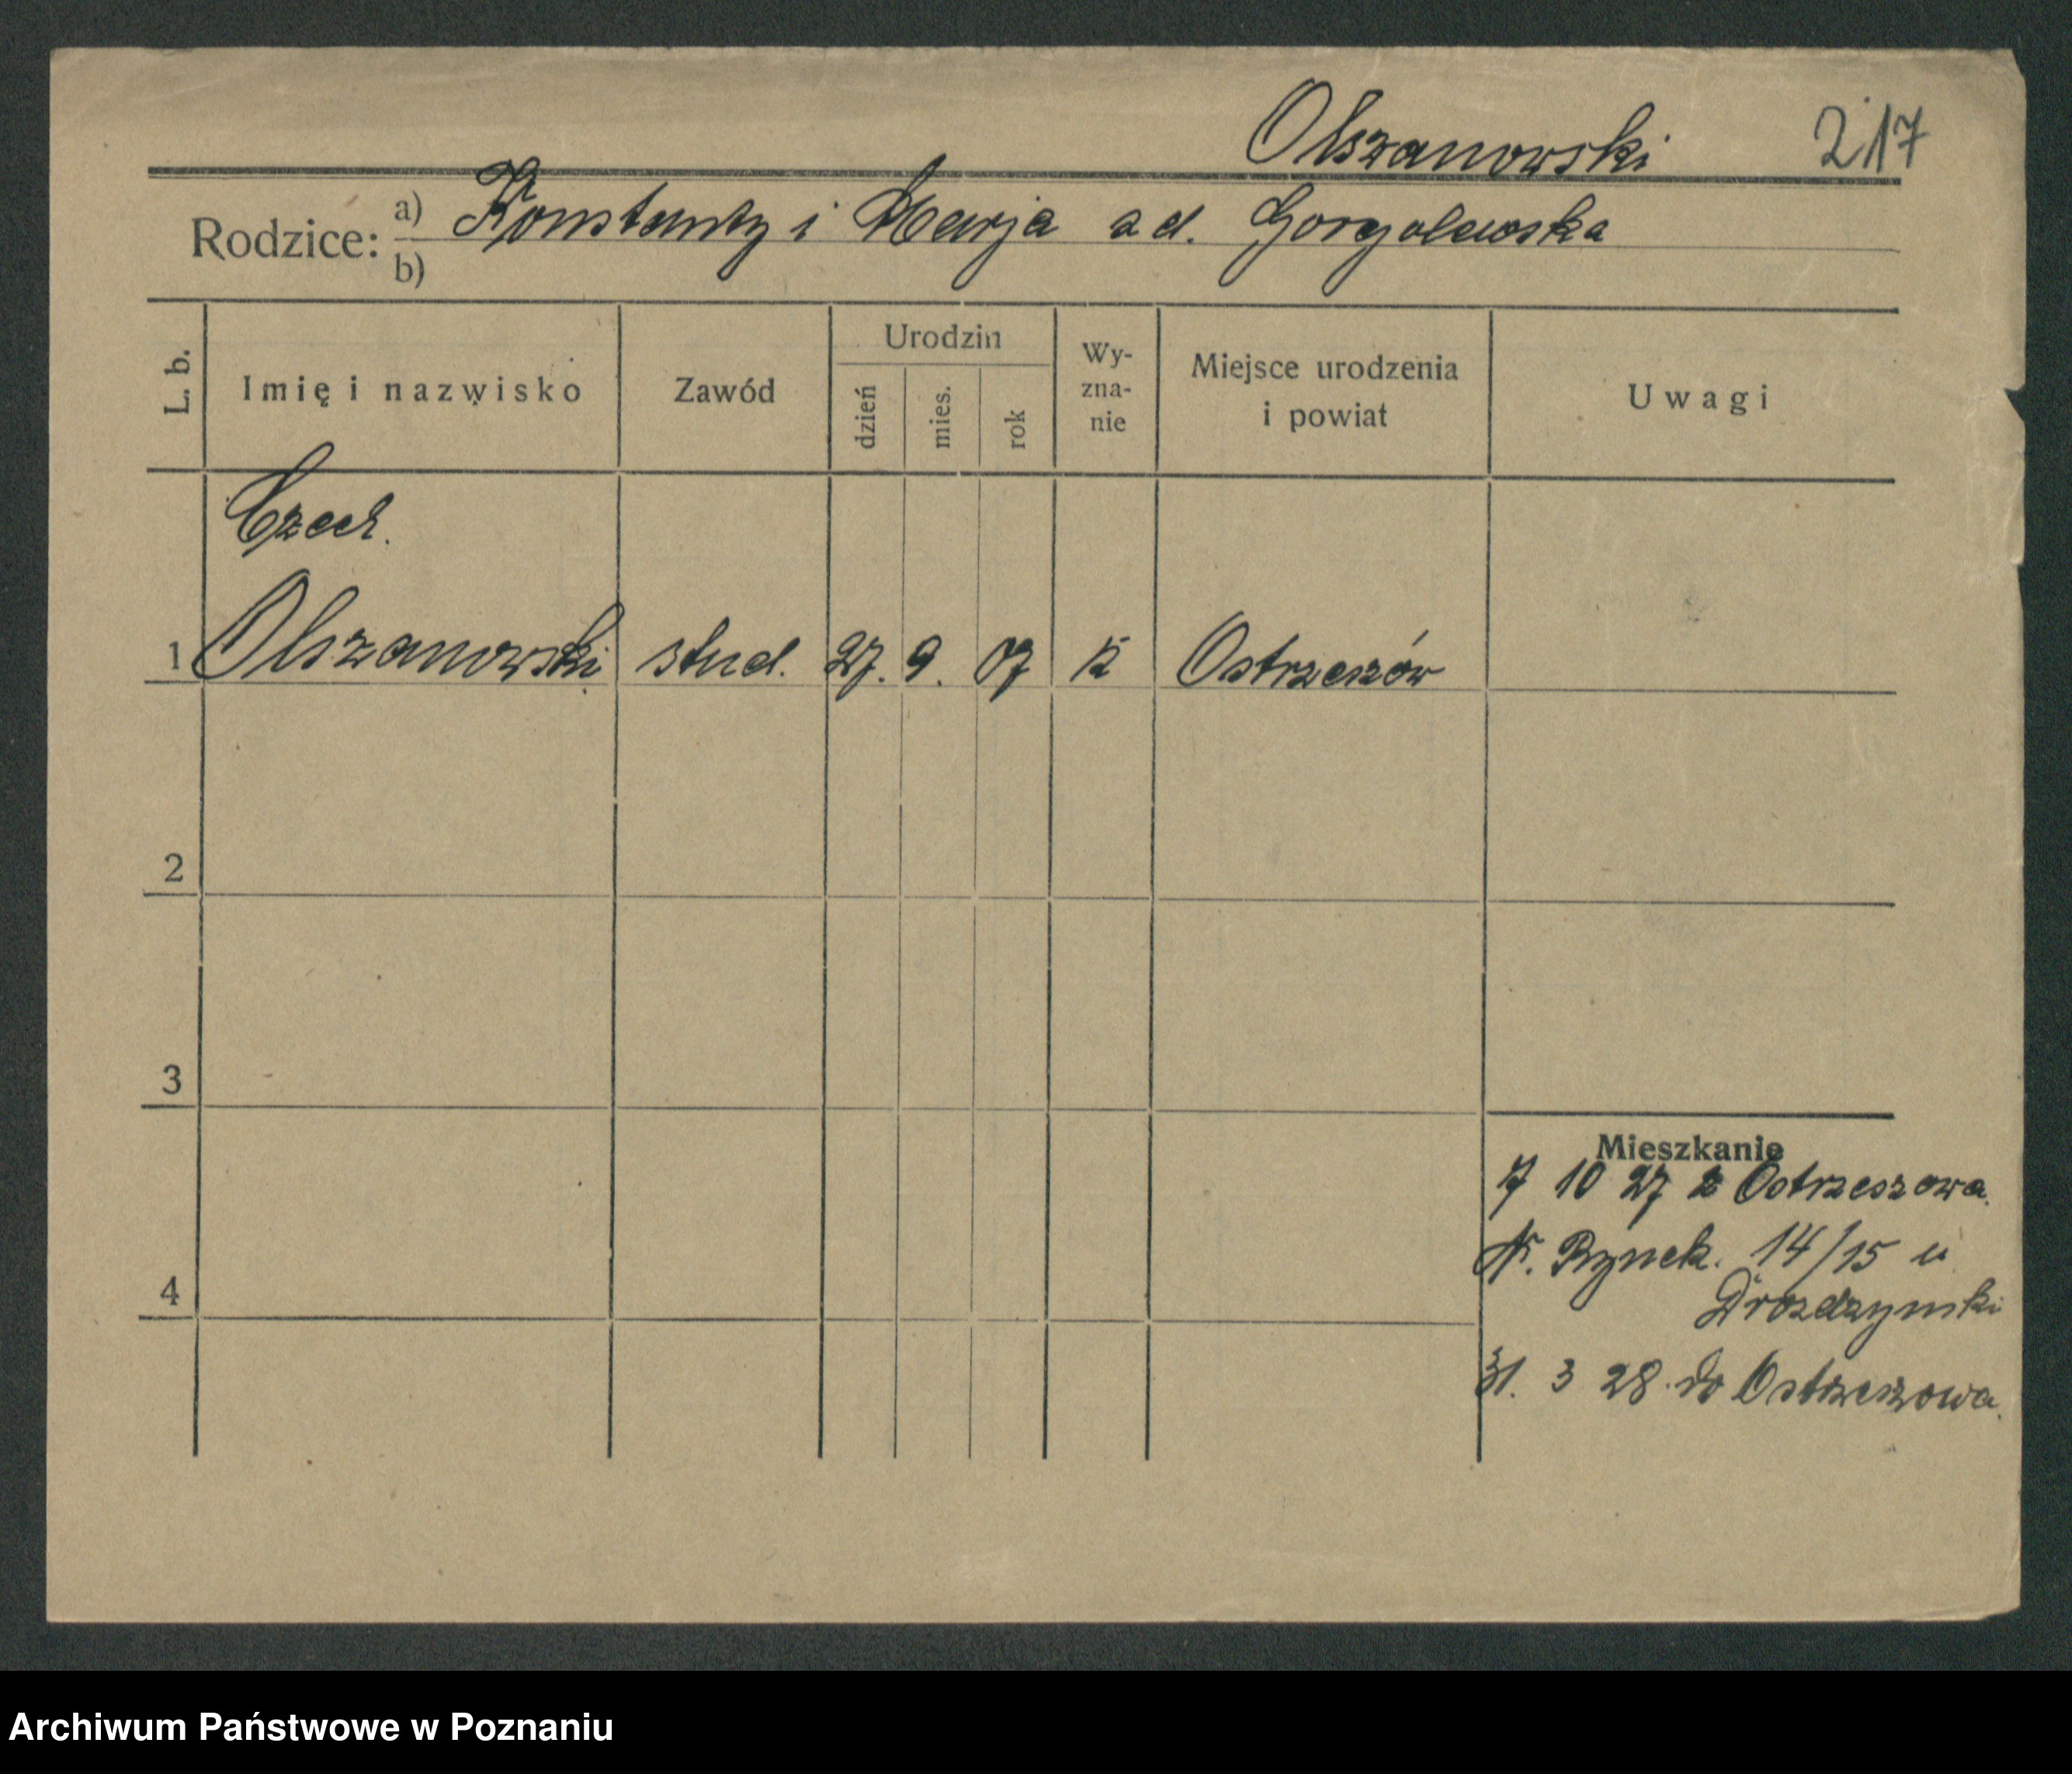 Olszanowski 217
Rodzice: a) Konstanty i Marja zd. Gorgolewska
b)
L. b. Imię i nazwisko Zawód Urodzin dzień mies. rok Wy-zna-nie Miejsce urodzenia i powiat Uwagi
Czech.
1 Olszanowski stud. 27. 9. 07 K Ostrzeszów
2
3
Mieszkanie
7 10 27 z Ostrzeszowa.
4
Rynek. 14/15 u
31. 3 28. do Ostrzeszowa.
Archiwum Państwowe w Poznaniu